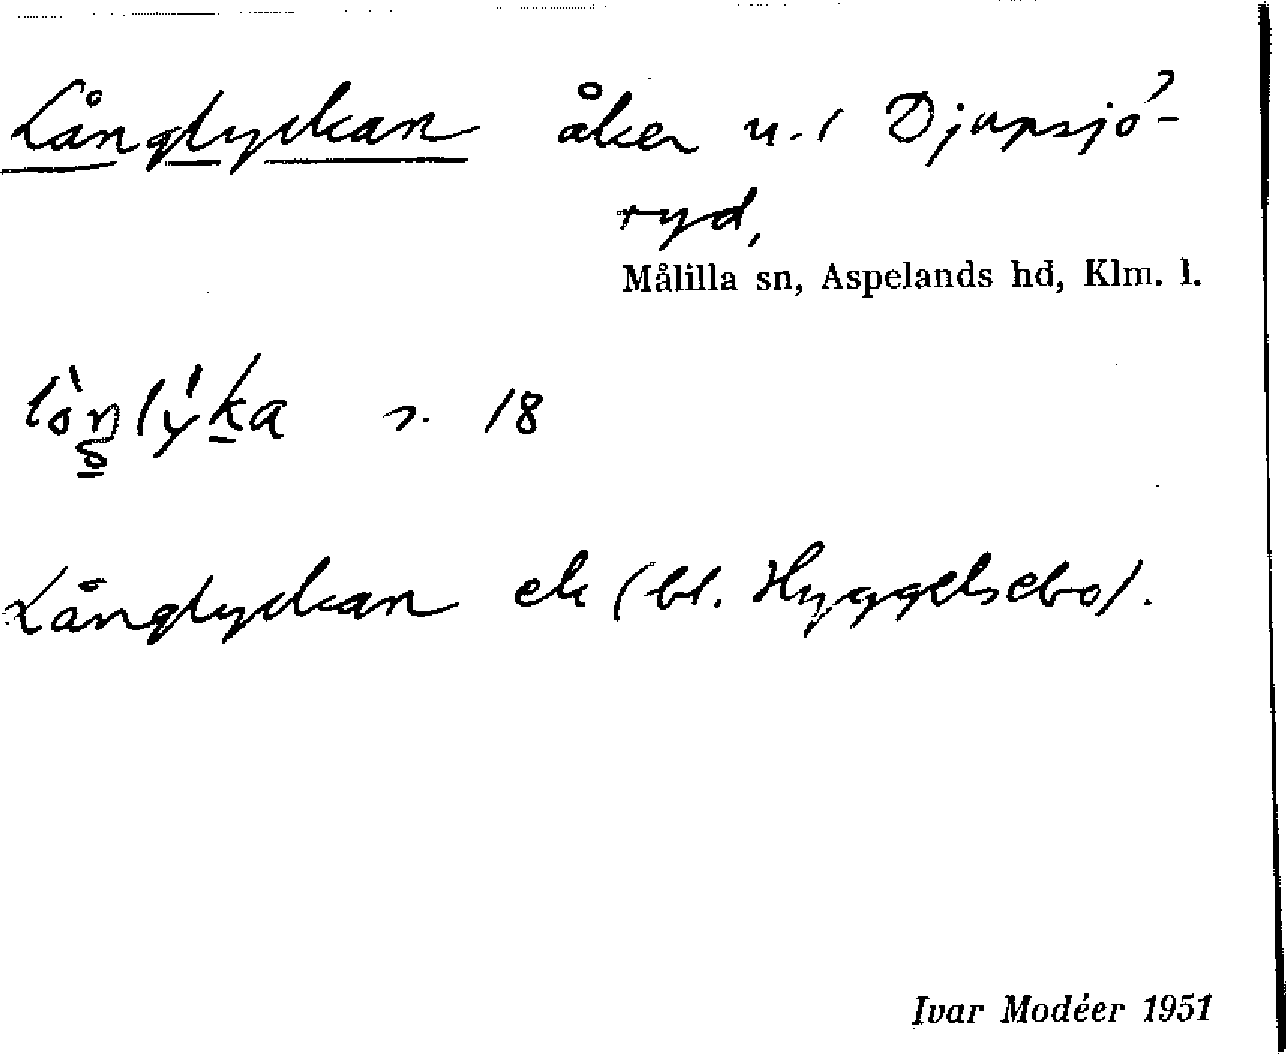 Långlyckan åker u. Djupsjö-
ryd,
Målilla sn, Aspelands hd, Klm. l.
s. 18
Långlyckan ek (bl. Hyggelsebo).
Ivar Modéer 1951